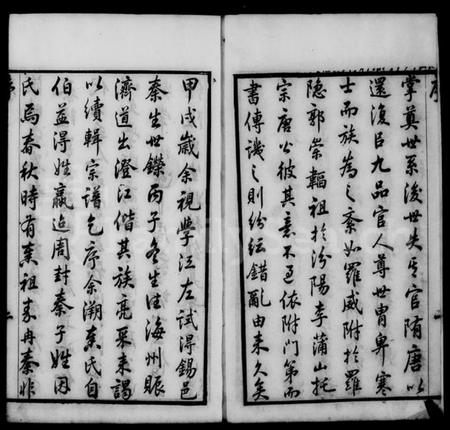 序
掌奠世系後世失其官隋唐以
還復以九品官人尊世胄卑寒
士而族為之紊如羅威附於羅
隐郭崇韜祖於汾陽李蒲山托
宗唐公彼其意不過依附門第而
書傳譏之則紛紜錯亂由来久矣
甲戌歲余視學江左試得錫邑
秦生世鑅丙子冬生往海州賑
濟道出澄江偕其族亮采来謁
以續輯宗譜乞序余溯秦氏自
伯益得姓嬴迨周封秦子姓因
氏焉春秋時有秦祖秦冉秦非
序